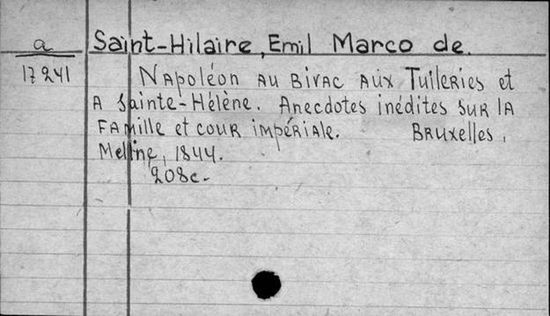 a
17241
Saint-Hilaire, Emil Marco de.
Napoléon au bivac aux Tuileries et
a Sainte-Hélène. Anecdotes inédites sur la
famille et cour impériale. Bruxelles,
Meline, 1844.
208c.